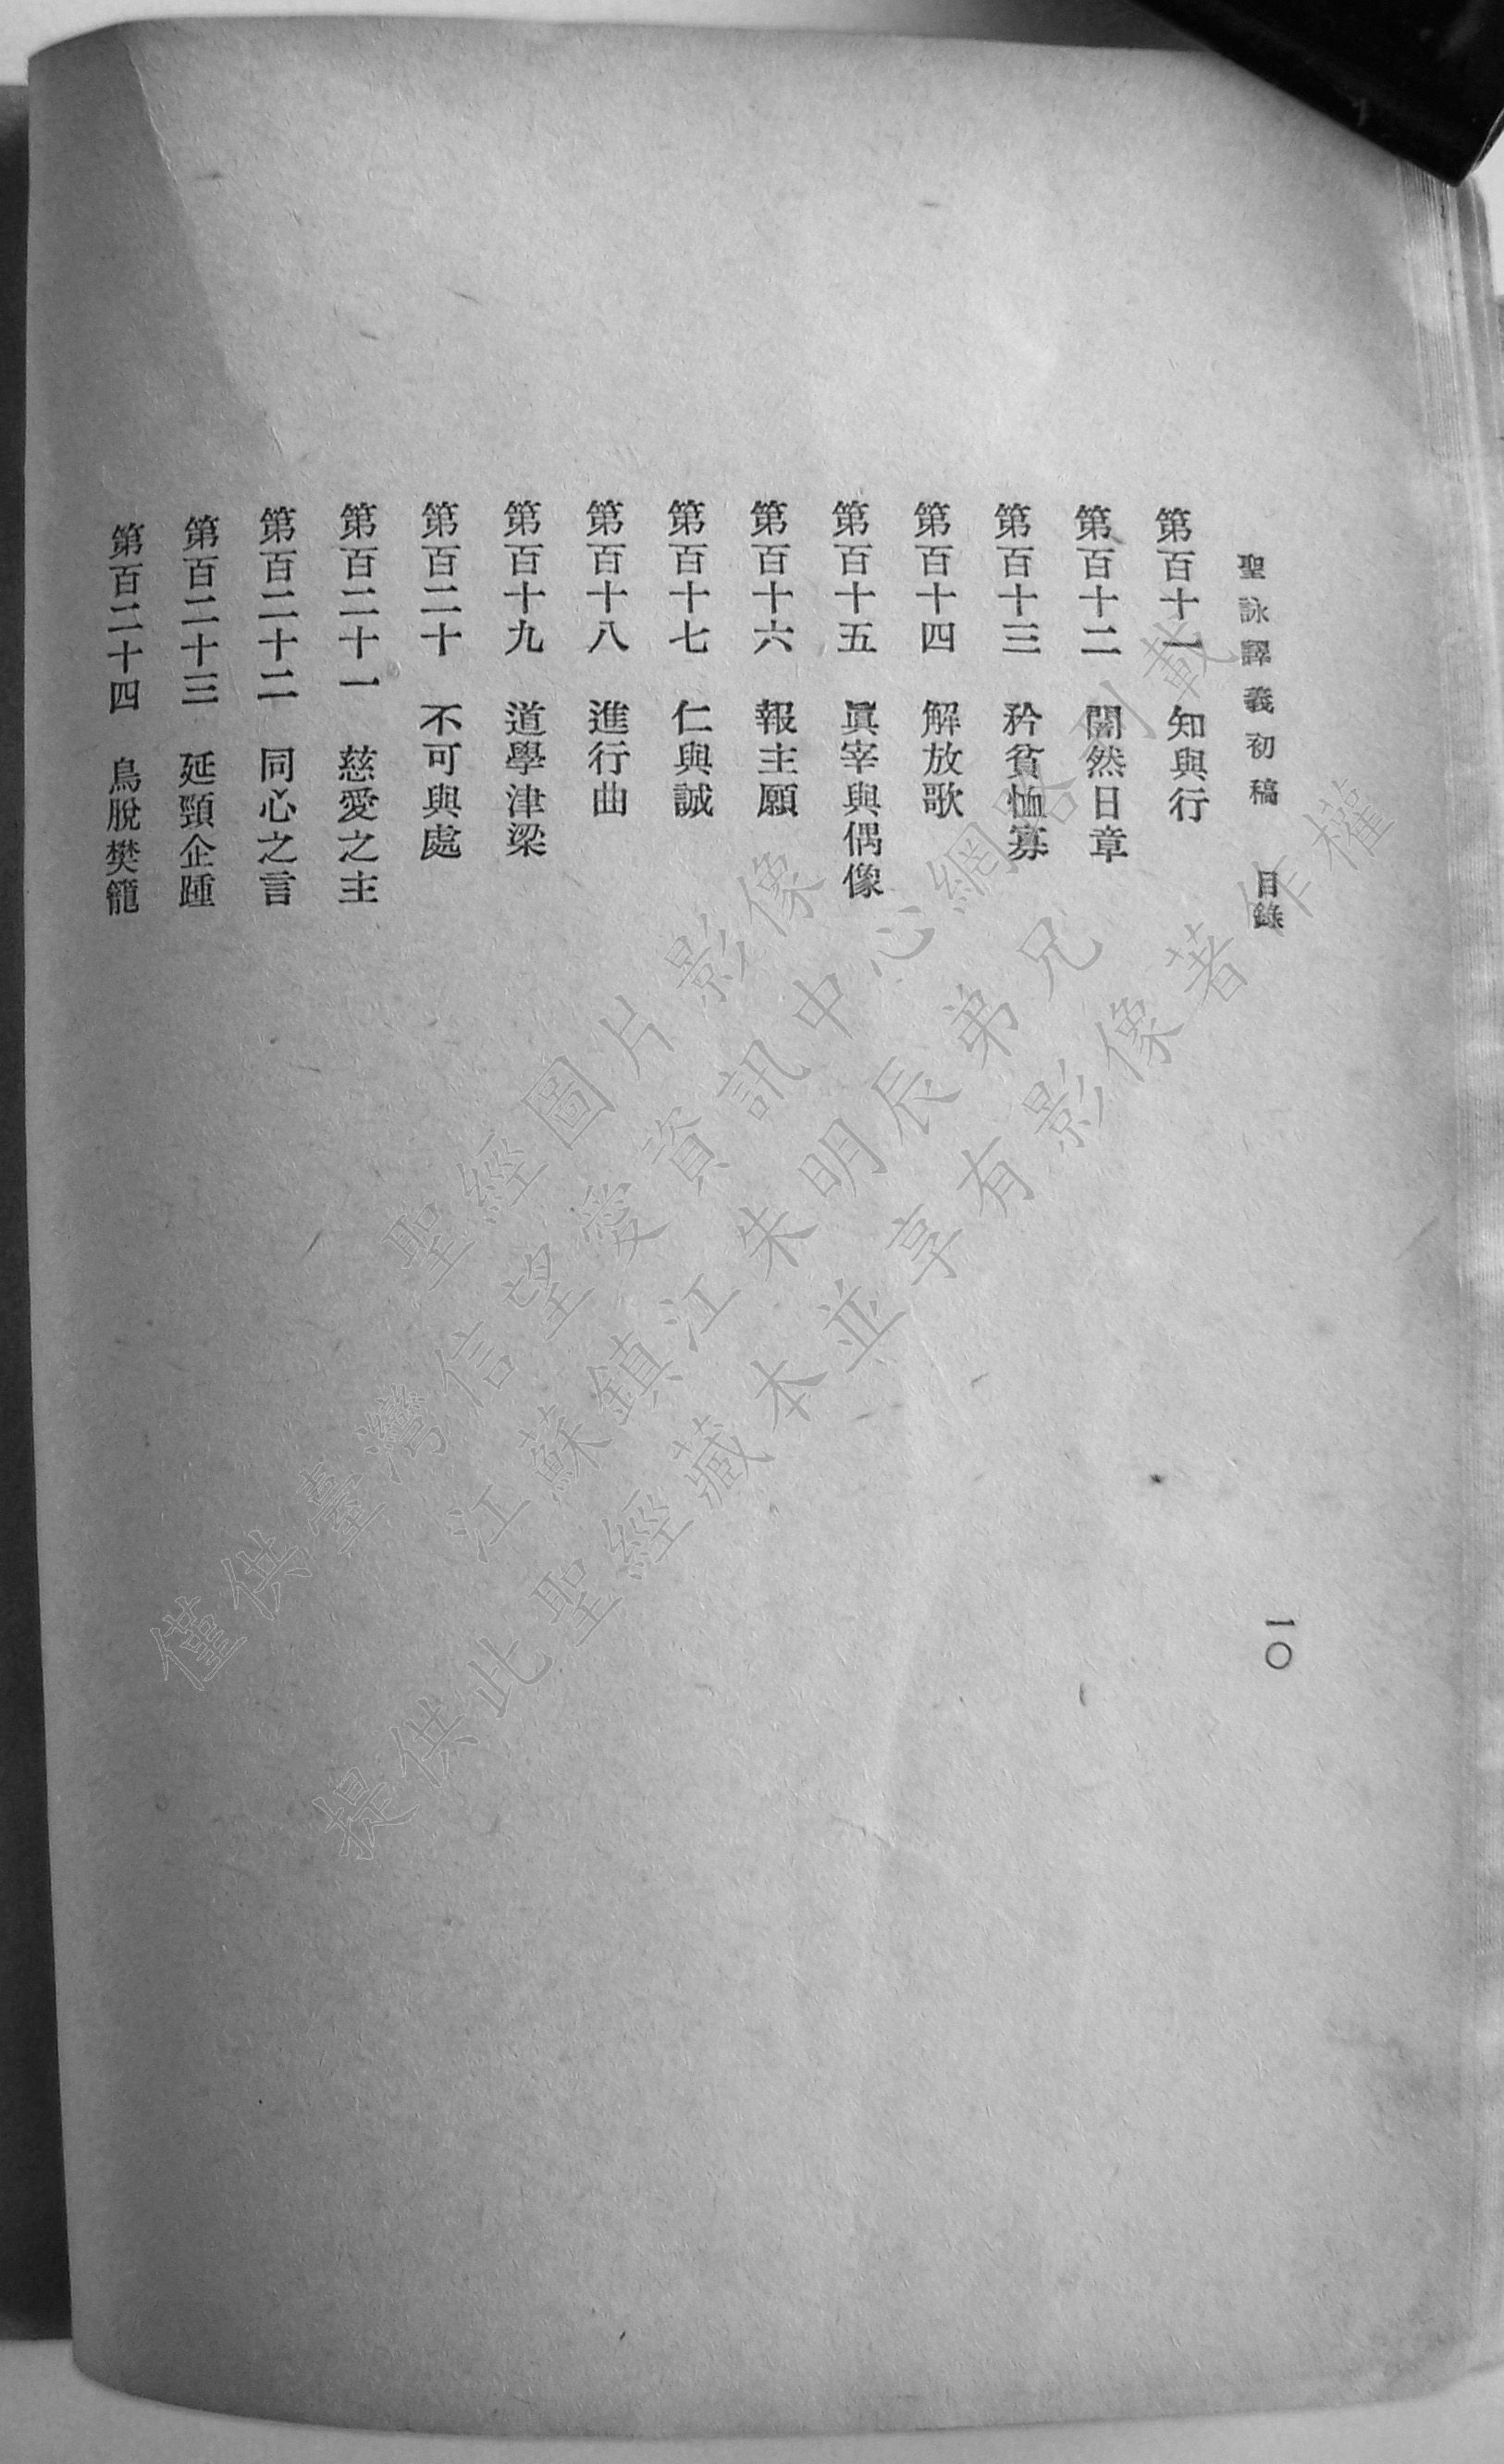 聖詠譯義初稿　目錄
一〇
第百十一　知與行
第百十二　闇然日章
第百十三　矜貧恤寡
第百十四　解放歌
第百十五　眞宰與偶像
第百十六　報主願
第百十七　仁與誠
第百十八　進行曲
第百十九　道學津梁
第百二十　不可與處
第百二十一　慈愛之主
第百二十二　同心之言
第百二十三　延頸企踵
第百二十四　鳥脫樊籠
聖經圖片影像
僅供臺灣信望愛資訊中心網路刊載
江蘇鎮江朱明辰弟兄
提供此聖經藏本並享有影像著作權